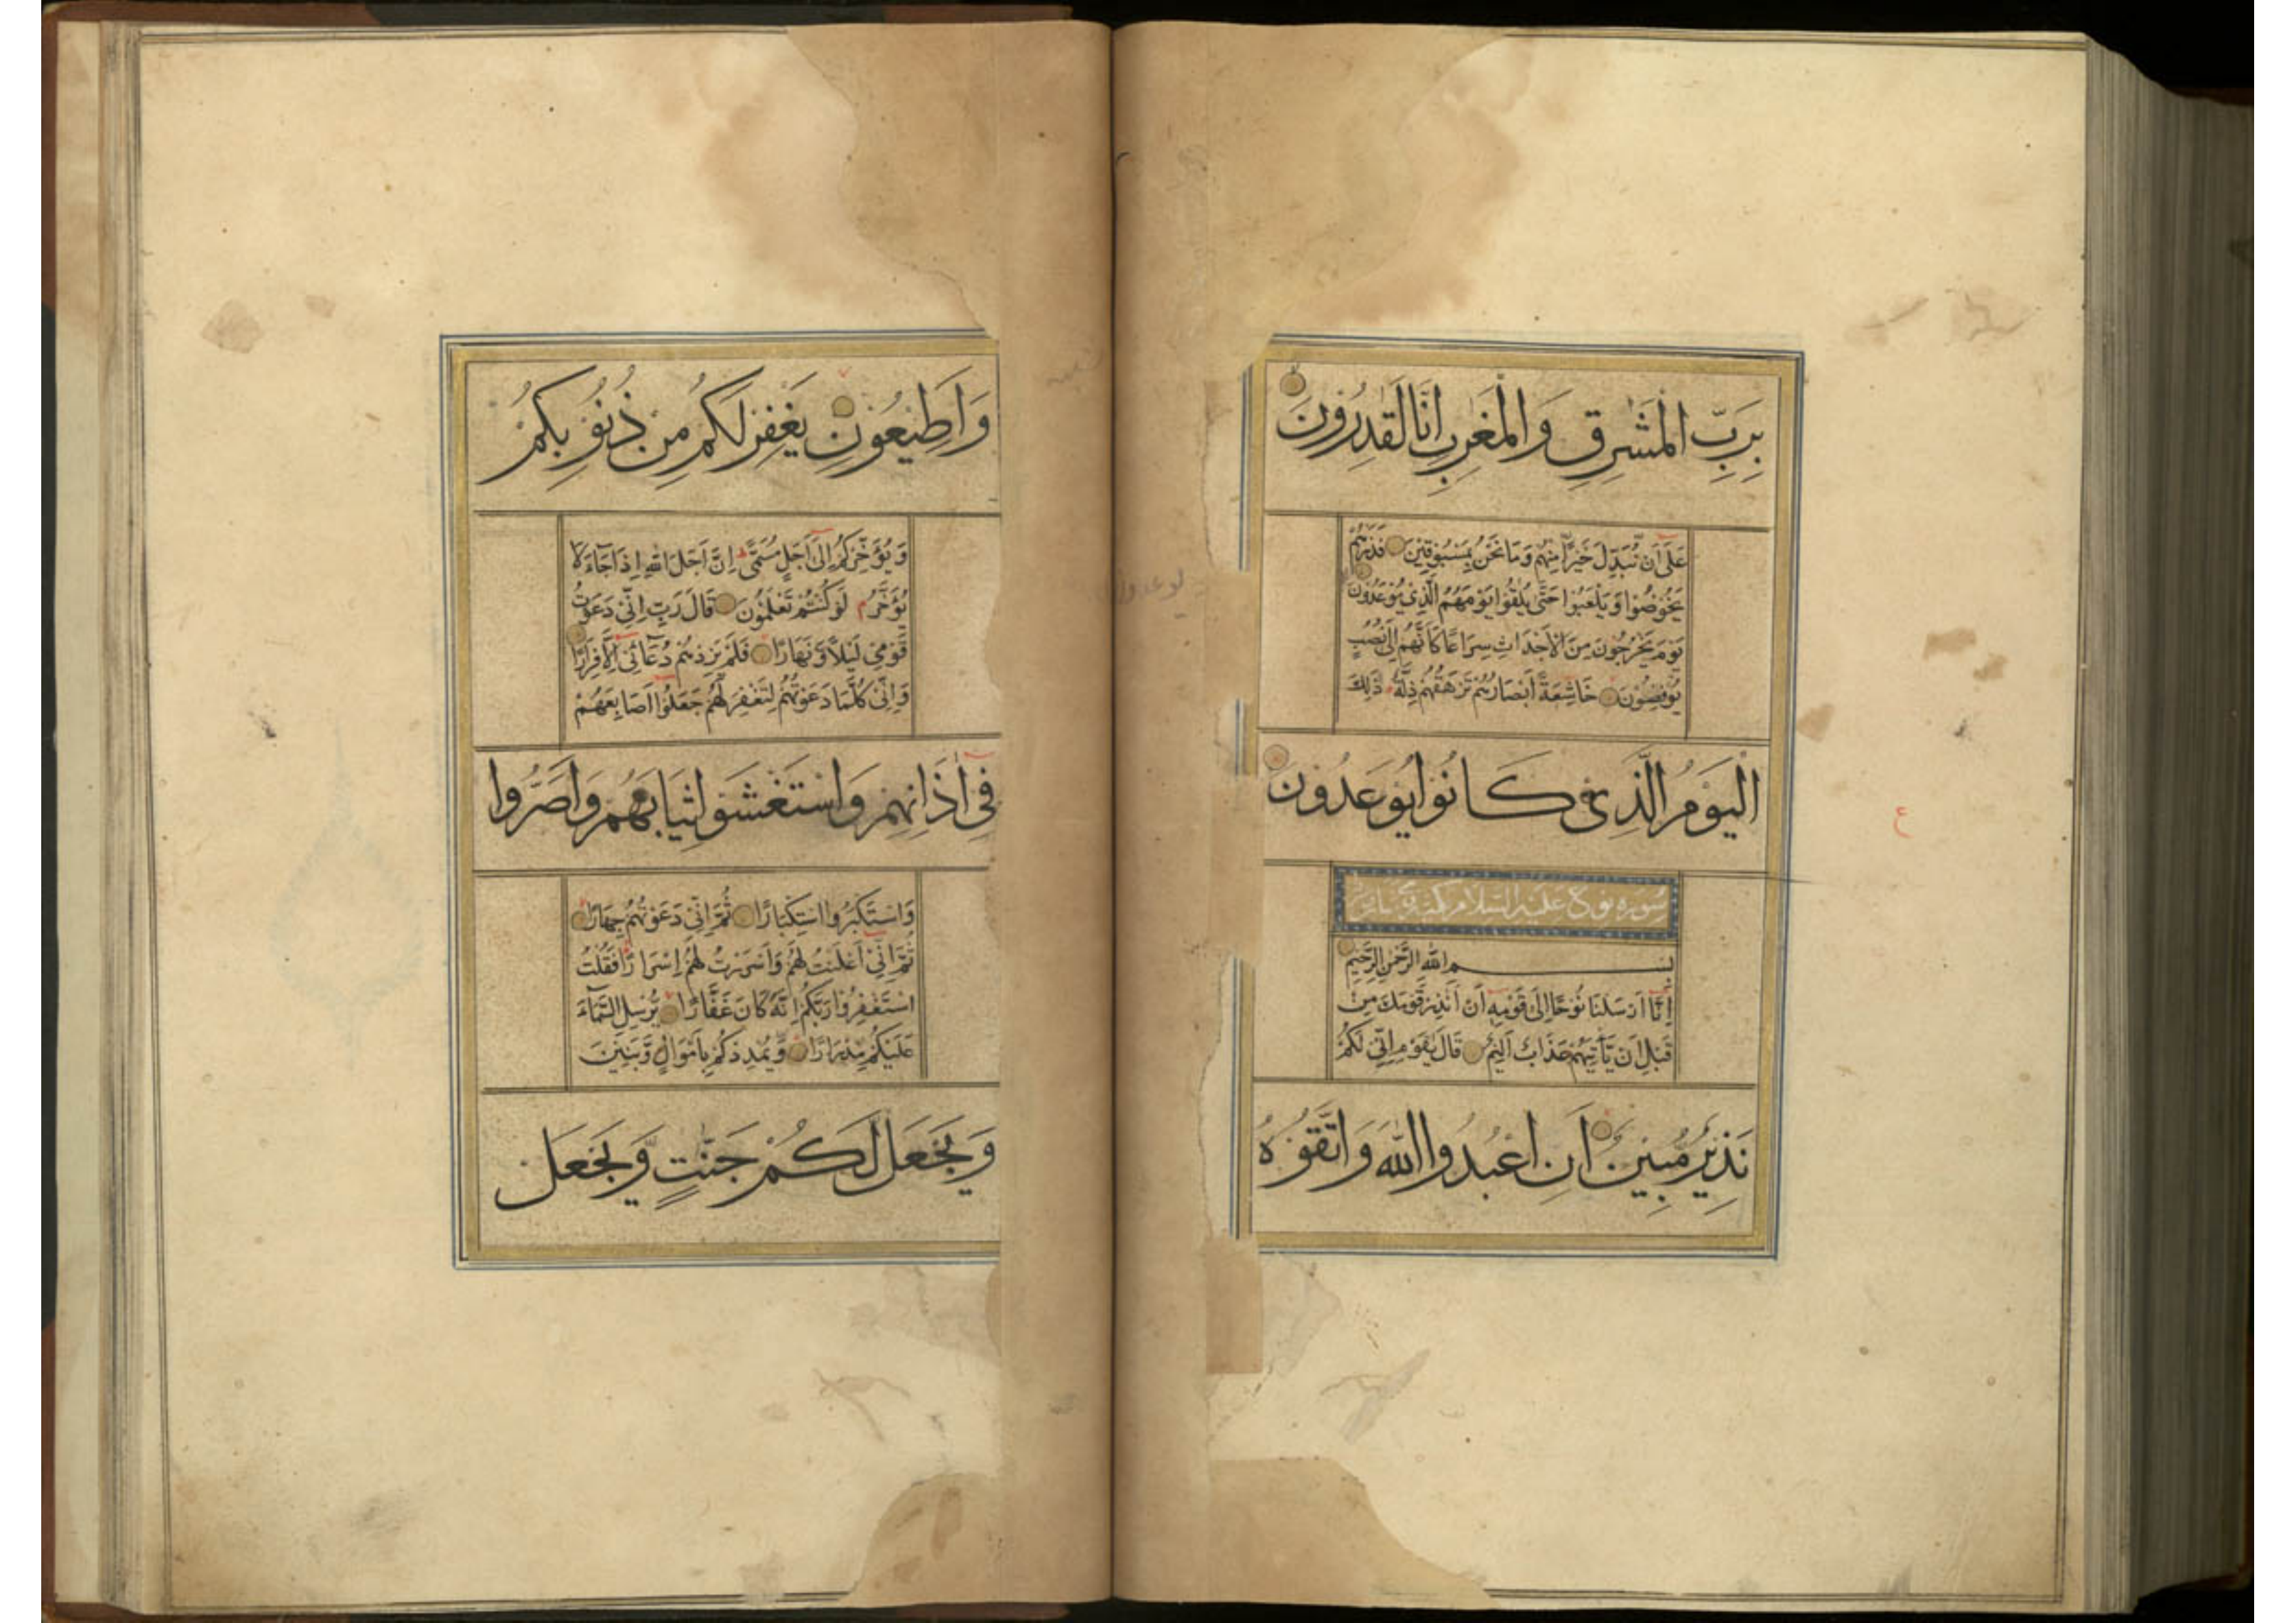 بِرَبِّ الْمَشٰرِقِ وَالْمَغٰرِبِ اِنَّا لَقٰدِرُونَ
عَلٰٓى اَنْ نُّبَدِّلَ خَيْرًا مِنْهُمْ وَمَا نَحْنُ بِمَسْبُوقِيْنَ فَذَرْهُمْ
يَخُوْضُوْا وَيَلْعَبُوْا حَتّٰى يُلٰقُوْا يَوْمَهُمُ الَّذِىْ يُوْعَدُوْنَ
يَوْمَ يَخْرُجُوْنَ مِنَ الْاَجْدَاثِ سِرَاعًا كَاَنَّهُمْ اِلٰى نُصُبٍ
يُوْفِضُوْنَ خَاشِعَةً اَبْصَارُهُمْ تَرْهَقُهُمْ ذِلَّةٌ ذٰلِكَ
الْيَوْمُ الَّذِىْ كَانُوْا يُوعَدُونَ
سورة نوح عليه السلام مكية
بسم الله الرَّحْمٰنِ الرَّحِيْمِ
اِنَّٓا اَرْسَلْنَا نُوْحًا اِلٰى قَوْمِهٖٓ اَنْ اَنْذِرْ قَوْمَكَ مِنْ
قَبْلِ اَنْ يَّأْتِيَهُمْ عَذَابٌ اَلِيْمٌ قَالَ يٰقَوْمِ اِنِّىْ لَكُمْ
نَذِيْرٌ مُّبِيْنٌ اَنِ اعْبُدُوا اللّٰهَ وَاتَّقُوْهُ
ع
وَاَطِيْعُوْنِ يَغْفِرْ لَكُمْ مِنْ ذُنُوْبِكُمْ
وَيُؤَخِّرْكُمْ اِلٰٓى اَجَلٍ مُسَمًّى اِنَّ اَجَلَ اللّٰهِ اِذَا جَآءَ لَا
يُؤَخَّرُ لَوْ كُنْتُمْ تَعْلَمُوْنَ قَالَ رَبِّ اِنِّىْ دَعَوْتُ
قَوْمِىْ لَيْلًا وَّنَهَارًا فَلَمْ يَزِدْهُمْ دُعَآئِىْٓ اِلَّا فِرَارًا
وَاِنِّىْ كُلَّمَا دَعَوْتُهُمْ لِتَغْفِرَ لَهُمْ جَعَلُوْٓا اَصَابِعَهُمْ
فِىْٓ اٰذَانِهِمْ وَاسْتَغْشَوْا ثِيَابَهُمْ وَاَصَرُّوا
وَاسْتَكْبَرُوا اسْتِكْبَارًا ثُمَّ اِنِّىْ دَعَوْتُهُمْ جِهَارًا
ثُمَّ اِنِّىْٓ اَعْلَنْتُ لَهُمْ وَاَسْرَرْتُ لَهُمْ اِسْرَارًا فَقُلْتُ
اسْتَغْفِرُوْا رَبَّكُمْ اِنَّهُ كَانَ غَفَّارًا يُّرْسِلِ السَّمَآءَ
عَلَيْكُمْ مِّدْرَارًا وَّيُمْدِدْكُمْ بِاَمْوَالٍ وَّبَنِيْنَ
وَيَجْعَلْ لَّكُمْ جَنّٰتٍ وَّيَجْعَلْ